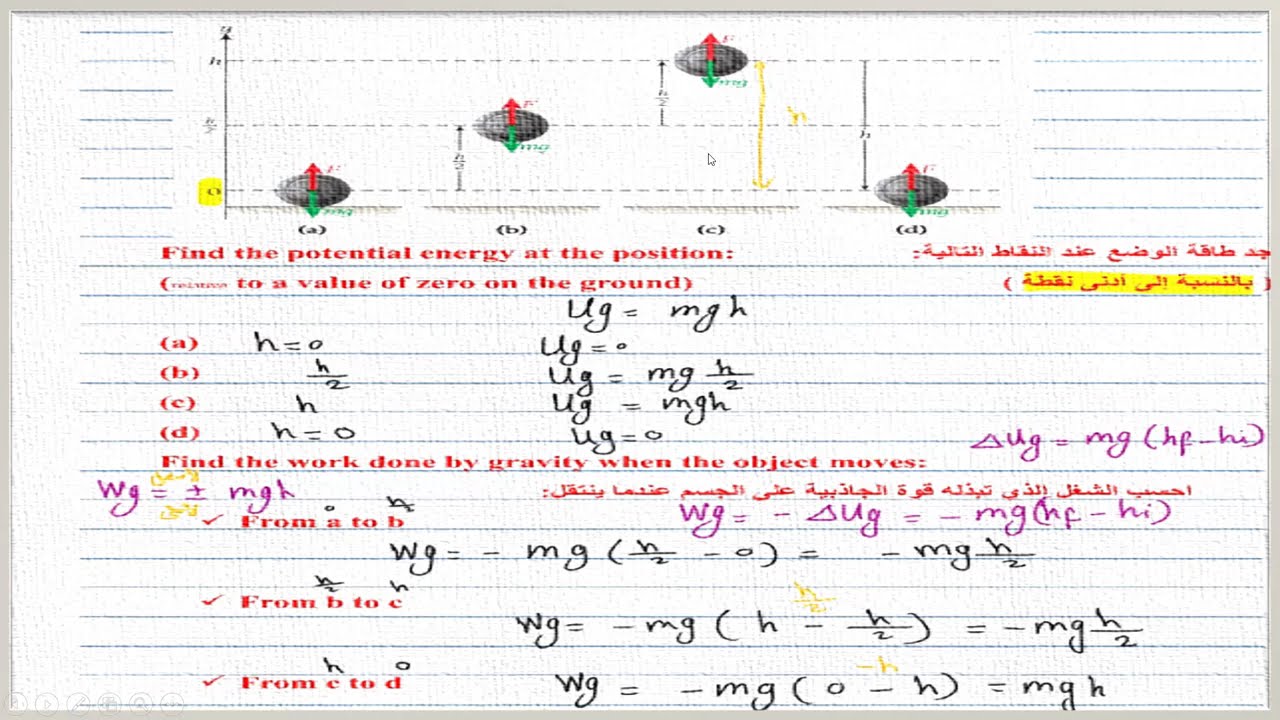 y
h
h/2
0
F
mg
h/2
F
mg
h/2
F
mg
h
h
F
mg
(a) (b) (c) (d)
Find the potential energy at the position: جد طاقة الوضع عند النقاط التالية:
(relative to a value of zero on the ground) ( بالنسبة إلى أدنى نقطة )
Ug = mgh
(a) h = 0 Ug = 0
(b) h/2 Ug = mg h/2
(c) h Ug = mgh
(d) h = 0 Ug = 0
ΔUg = mg (hf - hi)
Find the work done by gravity when the object moves:
Wg = ± mgh احسب الشغل الذي تبذله قوة الجاذبية على الجسم عندما ينتقل:
0 h/2
✓ From a to b Wg = - ΔUg = - mg(hf - hi)
Wg = - mg (h/2 - 0) = - mg h/2
h/2 h
✓ From b to c h/2
Wg = - mg ( h - h/2 ) = - mg h/2
h 0 -h
✓ From c to d Wg = - mg ( 0 - h) = mgh